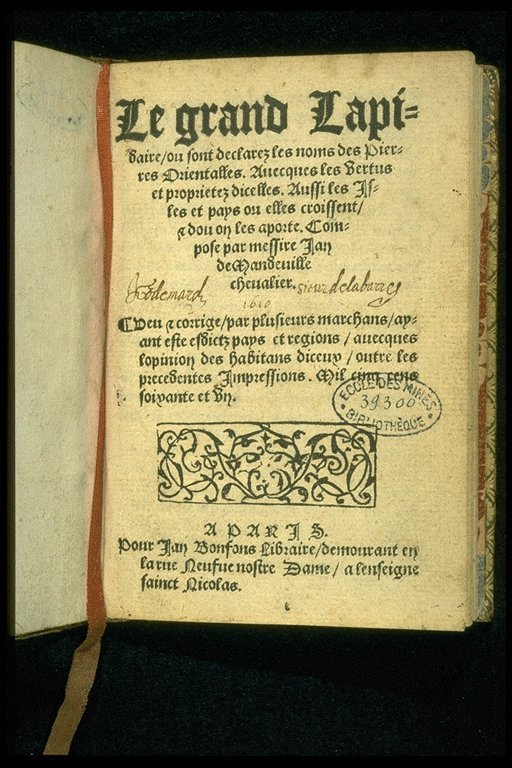 Le grand Lapi=
daire/ou sont declarez les noms des Pier=
res Orientalles. Auecques les Vertus
et proprietez dicelles. Aussi les Js=
les et pays ou elles croissent/
⁊ dou on les aporte. Com=
pose par messire Jan
de Mandeuille
cheualier. sieur delabarre
1610
¶Veu ⁊ corrige/par plusieurs marchans/ay=
ant este esdictz pays et regions / auecques
lopinion des habitans diceux / outre les
precedentes Jmpressions. Mil cinq cens
soixante et Vn.
ECOLE DES MINES
39300
BIBLIOTHÈQUE
A PARJS.
Pour Jan Bonfons Libraire/demourant en
la rue Neufue nostre Dame / a lenseigne
sainct Nicolas.